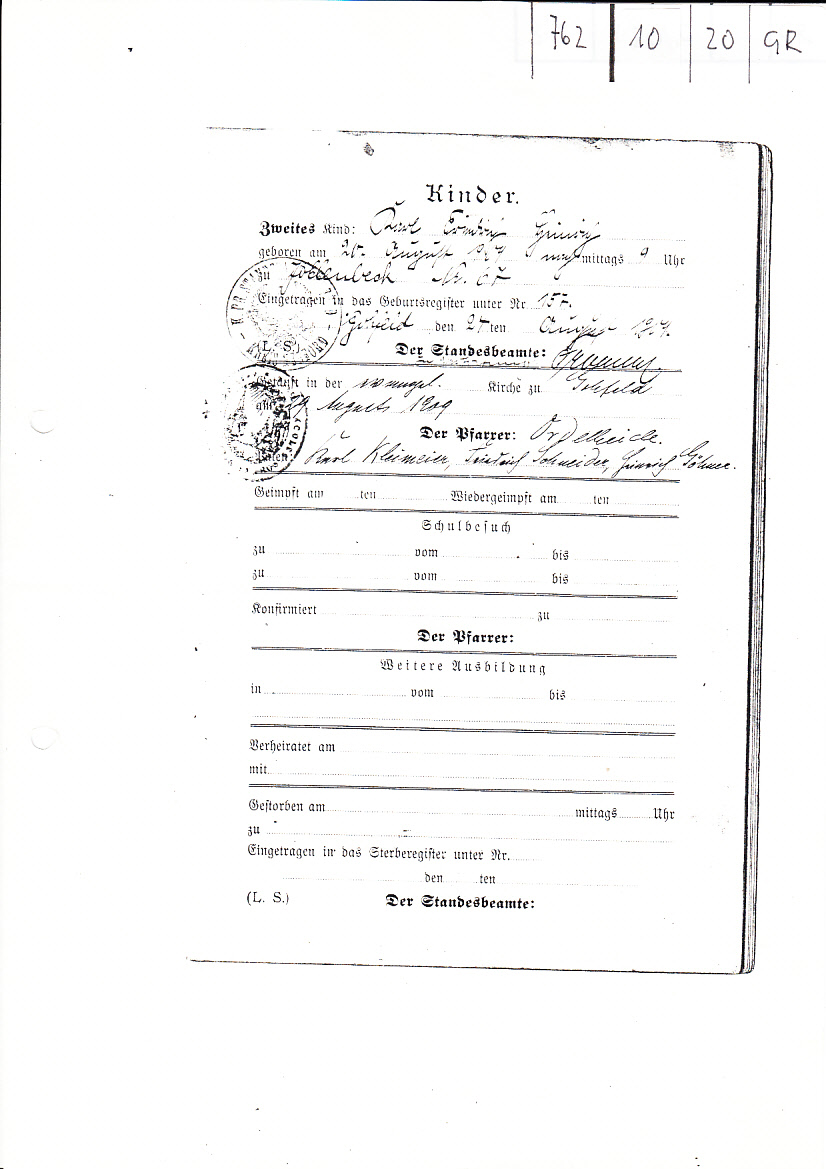 762 10 20 GR
Kinder.
Zweites Kind: Karl Friedrich Heinrich
geboren am 20. August 1909 nachmittags 9 Uhr
zu Jöllenbeck Nr. 67
Eingetragen in das Geburtsregister unter Nr 157.
Gohfeld den 24ten August 1909.
(L. S.) Der Standesbeamte:
Getauft in der evangel. Kirche zu Gohfeld
am 29 August 1909
Der Pfarrer:
Paten: Karl Kleimeier, Friedrich Schneider, Heinrich
Geimpft am ten Wiedergeimpft am ten
Schulbesuch
zu vom bis
zu vom bis
Konfirmiert zu
Der Pfarrer:
Weitere Ausbildung
in vom bis
Verheiratet am
mit
Gestorben am mittags Uhr
zu
Eingetragen in das Sterberegister unter Nr.
den ten
(L. S.) Der Standesbeamte: